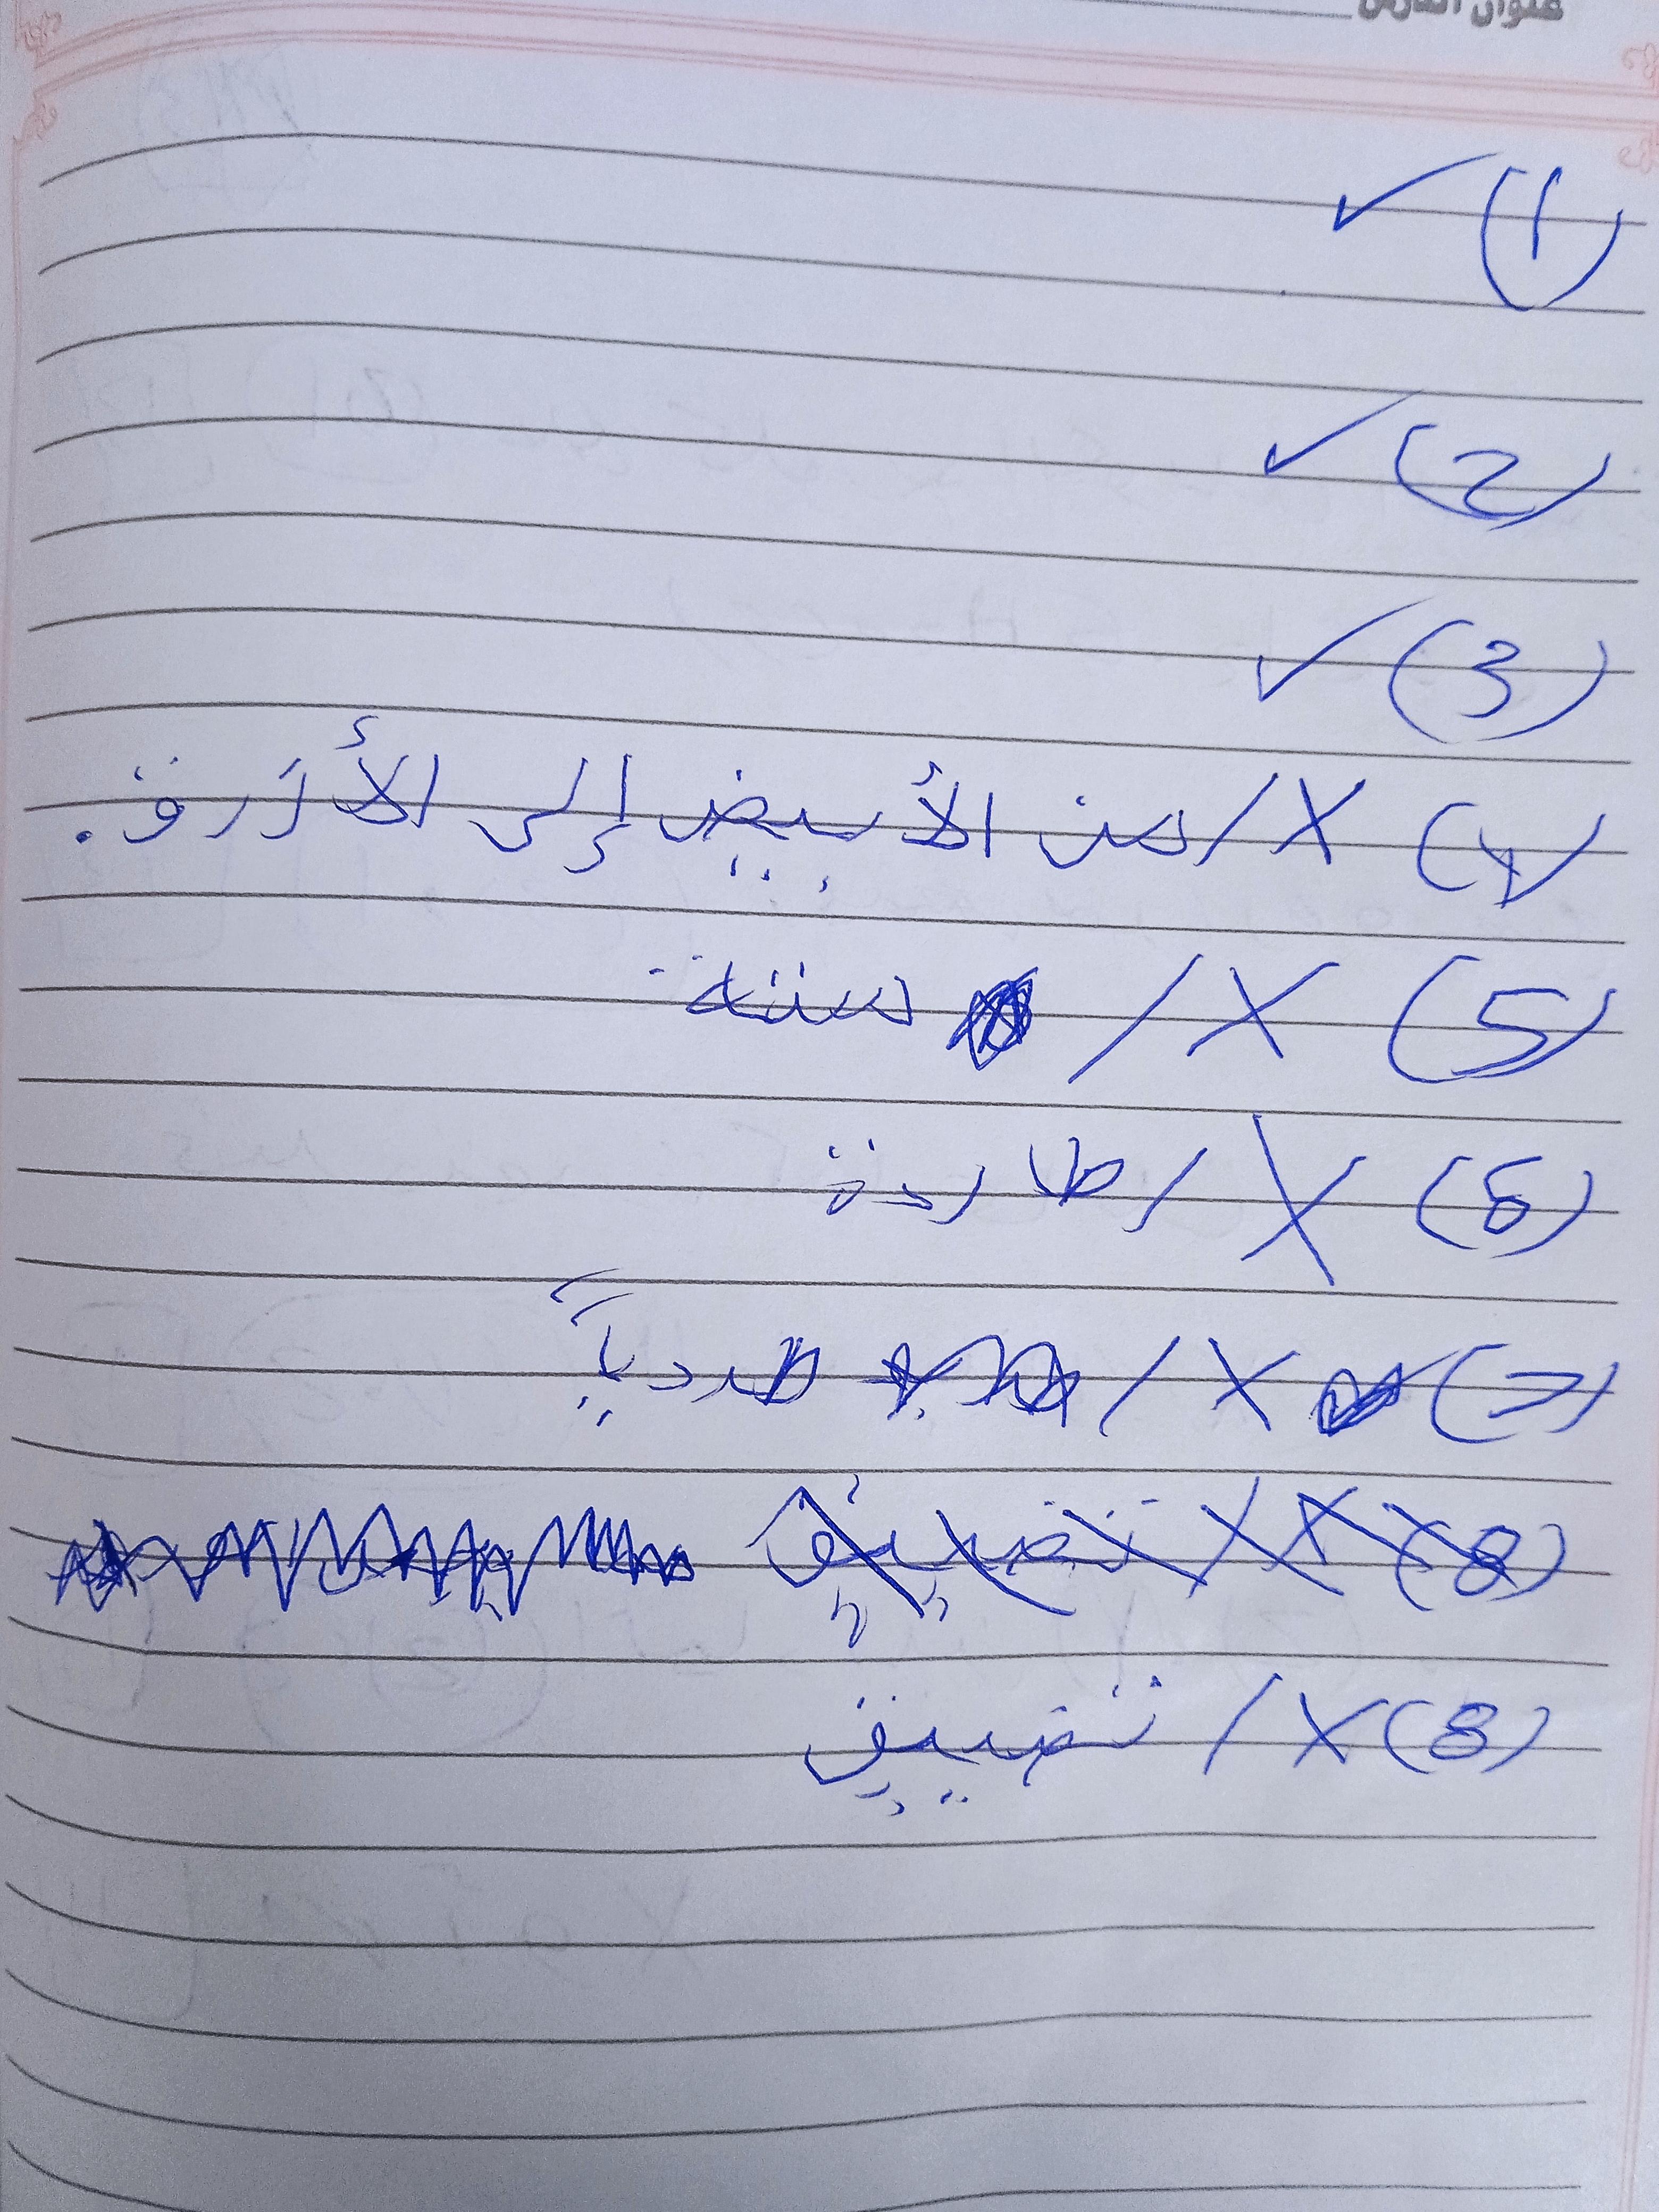 عنوان الدرس
(1) ✓
(2) ✓
(3) ✓
(4) X / من الأبيض إلى الأزرق.
(5) X / سنة
(6) X / طاردة
(7) X / طردياً
(8) X / تضييق
(8) X / تضييق